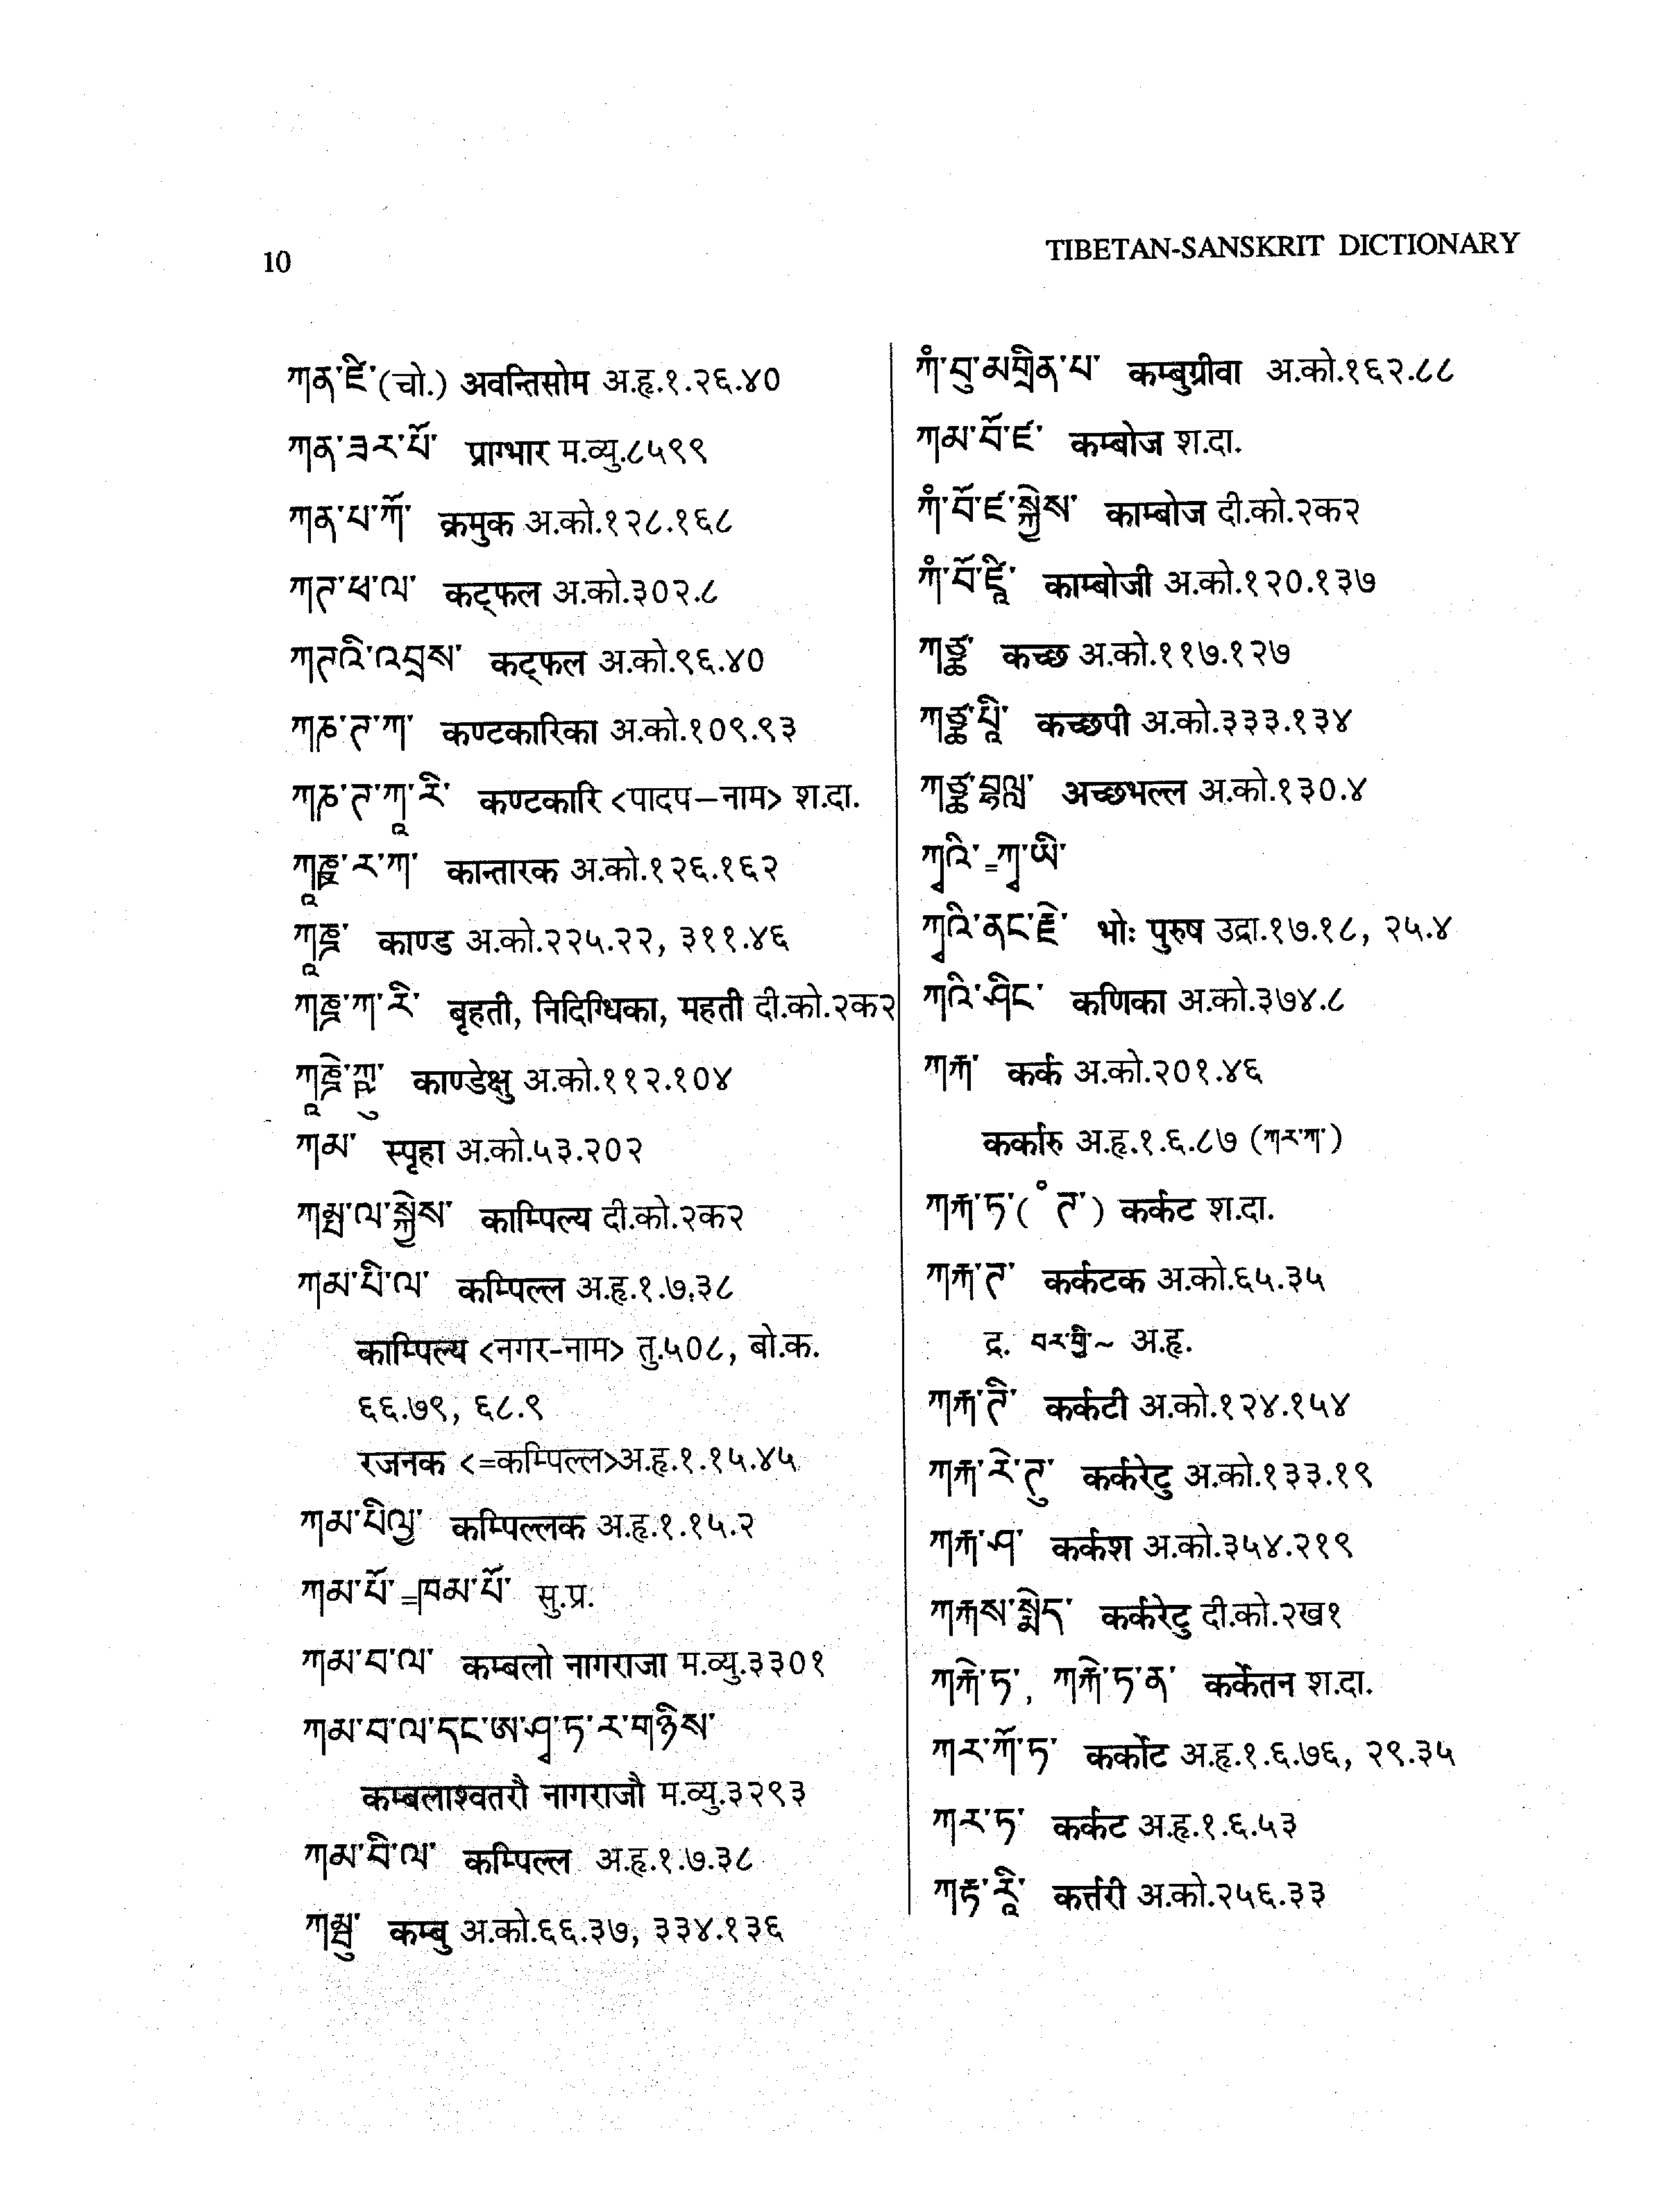 10
TIBETAN-SANSKRIT DICTIONARY
ཀན་ཇི་(चो.) अवन्तिसोम अ.हृ.१.२६.४०
ཀན་ཟར་པོ་ प्राग्भार म.व्यु.८५९९
ཀན་པ་ཀོ་ क्रमुक अ.को.१२८.१६८
ཀཊ་ཕ་ལ་ कट्फल अ.को.३०२.८
ཀཊའི་འབྲས་ कट्फल अ.को.९६.४०
ཀཎ་ཊ་ཀ་ कण्टकारिका अ.को.१०९.९३
ཀཎ་ཊ་ཀཱ་རི་ कण्टकारि <पादप–नाम> श.दा.
कान्तारक अ.को.१२६.१६२
ཀཱཎྜ་ काण्ड अ.को.२२५.२२, ३११.४६
ཀཎྜ་ཀ་རི་ बृहती, निदिग्धिका, महती दी.को.२क२
काण्डेक्षु अ.को.११२.१०४
ཀམ་ स्पृहा अ.को.५३.२०२
ཀམྤ་ལ་སྐྱེས་ काम्पिल्य दी.को.२क२
ཀམ་པི་ལ་ कम्पिल्ल अ.हृ.१.७.३८
काम्पिल्य <नगर-नाम> तु.५०८, बो.क.
६६.७९, ६८.९
रजनक <=कम्पिल्ल>अ.हृ.१.१५.४५
ཀམ་པིལྱ་ कम्पिल्लक अ.हृ.१.१५.२
ཀམ་པོ་=ཁམ་པོ་ सु.प्र.
ཀམ་བ་ལ་ कम्बलो नागराजा म.व्यु.३३०१
ཀམ་བ་ལ་དང་ཨ་ཤྭ་ཏ་ར་གཉིས་
कम्बलाश्वतरौ नागराजौ म.व्यु.३२९३
ཀམ་བི་ལ་ कम्पिल्ल अ.हृ.१.७.३८
ཀམྦུ་ कम्बु अ.को.६६.३७, ३३४.१३६
ཀཾ་བུ་མགྲིན་པ་ कम्बुग्रीवा अ.को.१६२.८८
ཀམ་བོ་ཛ་ कम्बोज श.दा.
ཀཾ་བོ་ཛ་སྐྱེས་ काम्बोज दी.को.२क२
ཀཾ་བོ་ཛཱི་ काम्बोजी अ.को.१२०.१३७
ཀཙྪ་ कच्छ अ.को.११७.१२७
ཀཙྪ་པཱི་ कच्छपी अ.को.३३३.१३४
ཀཙྪ་བྷལླ་ अच्छभल्ल अ.को.१३०.४
ཀྭའི་=ཀྭ་ཡི་
ཀྭའི་ནང་རྗེ་ भोः पुरुष उद्रा.१७.१८, २५.४
ཀའི་ཤིང་ कणिका अ.को.३७४.८
ཀརྐ་ कर्क अ.को.२०१.४६
कर्कारु अ.हृ.१.६.८७ (ཀར་ཀ་)
ཀརྐ་ཏ་( ° ཊ་) कर्कट श.दा.
ཀརྐ་ཊ་ कर्कटक अ.को.६५.३५
द्र. བར་གྱི་~ अ.हृ.
ཀརྐ་ཊི་ कर्कटी अ.को.१२४.१५४
ཀརྐ་རེ་ཊུ་ कर्करेटु अ.को.१३३.१९
ཀརྐ་ཤ་ कर्कश अ.को.३५४.२१९
ཀརྐས་སྨེད་ कर्करेटु दी.को.२ख१
ཀརྐེ་ཏ་, ཀརྐེ་ཏ་ན་ कर्केतन श.दा.
ཀར་ཀོ་ཏ་ कर्कोट अ.हृ.१.६.७६, २९.३५
ཀར་ཏ་ कर्कट अ.हृ.१.६.५३
ཀརྟ་རཱི་ कर्त्तरी अ.को.२५६.३३